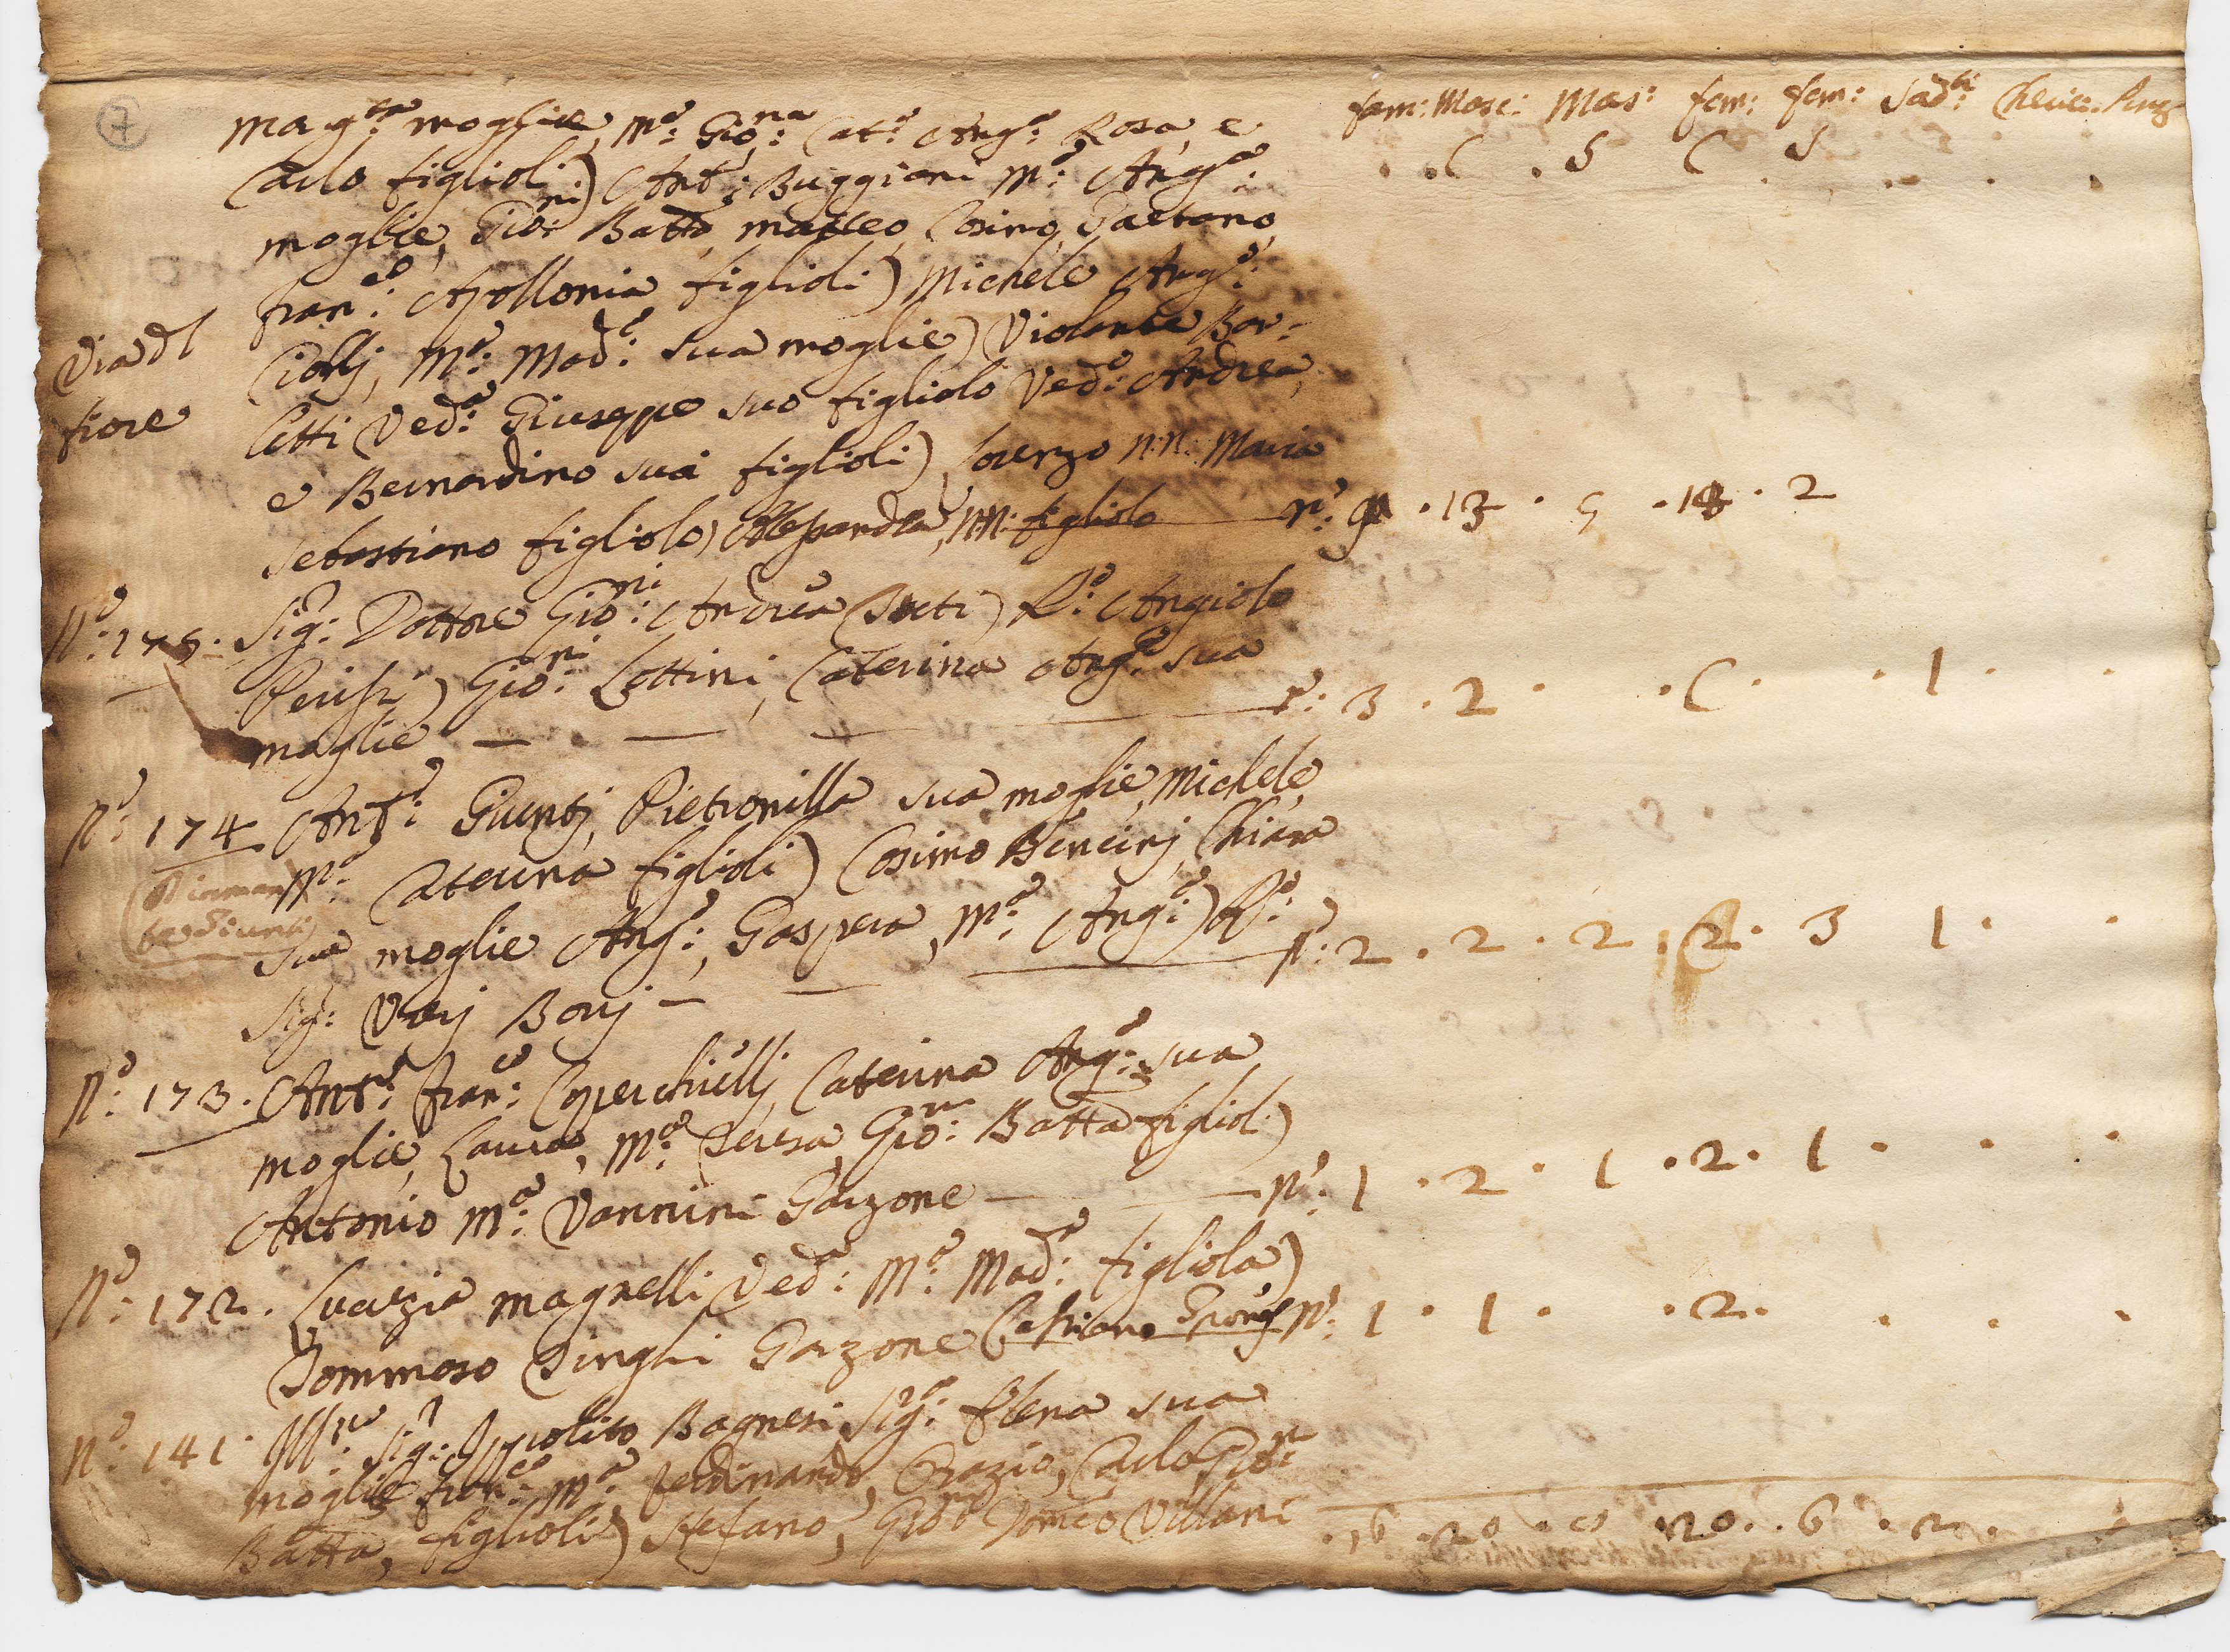 7
fam: Masc: Mas: fem: fem: Sadti: Cheric:
. . C . S C S
Marg.ta moglie, M.a Gio:na Cat.a Ang.a Rosa, e
Carlo figlioli) Ant.o: Buggiani M.a: Ang.a:
moglie, Gio:ni Batta, matteo, Cosimo, Gaetano,
fran:co: Apollonia figlioli) Michele Ang.o:
Via dl
fiore
Ciolij, M.a: Mad.a: sua moglie) Violante Bar-
litti Ved.a: Giuseppe suo figliolo Ved.o: Andrea,
e Bernardino suoi figlioli) Lorenzo N:N: Maria
Sebastiano figliolo) Alessandra, NN: figliolo n.o: 9 . 13 . 5 . 18 . 2
N.o: 175. Sig.r: Dottore Gio:ni: Andrea R.o: Angiolo
Gio:ni: Lottini, Caterina Ang.a sua
moglie n.o: 3 . 2 . . C . . 1 . .
N.o: 174 Ant.o: Giuntj, Pietronilla sua moglie, Michele,
M.a: Caterina figlioli) Cosimo Bencinj, Chiara
sua moglie Ang.a:, Gaspera, M.a: Ang.a:) R.o: n.o: 2 . 2 . 2 . 2 . 3 1 . .
Sig.r: Borj
N.o: 173. Ant.o: fran:co: Coperchiellj, Caterina Ang.a: sua
moglie, Laura, M.a: Teresa, Gio:ni: Batta figliol:)
Antonio M.a: Vannini Garzone n.o: 1 . 2 . 1 . 2 . 1 . . .
N.o: 172. Lucrezia magnelli Ved.a: M.a: Mad.a: figliola)
Tommaso Tinghi Garzone n.o: 1 . 1 . . 2 . . . .
N.o: 141. Ill.re: Sig.r: Ippolito Bagnesi Sig.a: Elena sua
moglie fran:co: M.a: ferdinando, Orazio, Carlo, Gio:ni
Batta, figlioli) Stefano, Gio:ni Dom:co Villani . 16 . 20 . 8 . 20 . . 6 . 2 .